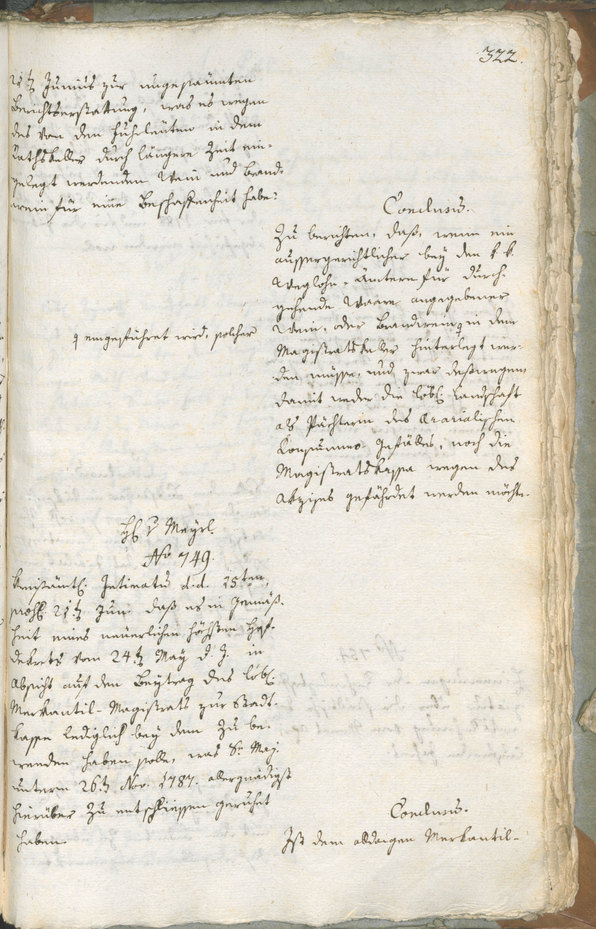 322.
21t Junius zur umgespannten
Berichtserstattung, was es wegen
des von den Fuhrleuten in dem
Rathskeller durch längere Zeit ein-
gelegt werdenden Wein und Brand-
wein für eine Beschaffenheit habe?
Conclusum.
Zu berichten, daß, wenn ein
aussergerichtlicher bey den k. k.
Weglohn-ämtern für durch-
gehende Waare angegebener
Wein, oder Brandwein in dem
eingeführet wird, solcher
Magistratskeller hinterlegt wer-
den müsse, und zwar deßwegen
damit weder die löbl. Landschaft
als Pächterin des Ararialischen
Konsummo Gefälles, noch die
Magistratskassa wegen des
Akzises gefährdet werden möchte.
H. v Meyrl.
No 749.
Kreisämtl. Intimatum d.d. 15ten,
praes. 21t Juny daß es in Gemäß-
heit eines neuerlichen höchsten Hof-
dekrets vom 24.t May d. J. in
Absicht auf den Beytrag des löbl.
Merkantil-Magistrats zur Stadt-
kasse lediglich bey dem zu be-
wenden haben solle, was Se May.
unterm 26.t Nov. 1787. allergnädigst
hierüber zu entschliessen geruhet
haben.
Conclusum.
Ist dem allhiesigen Merkantil-